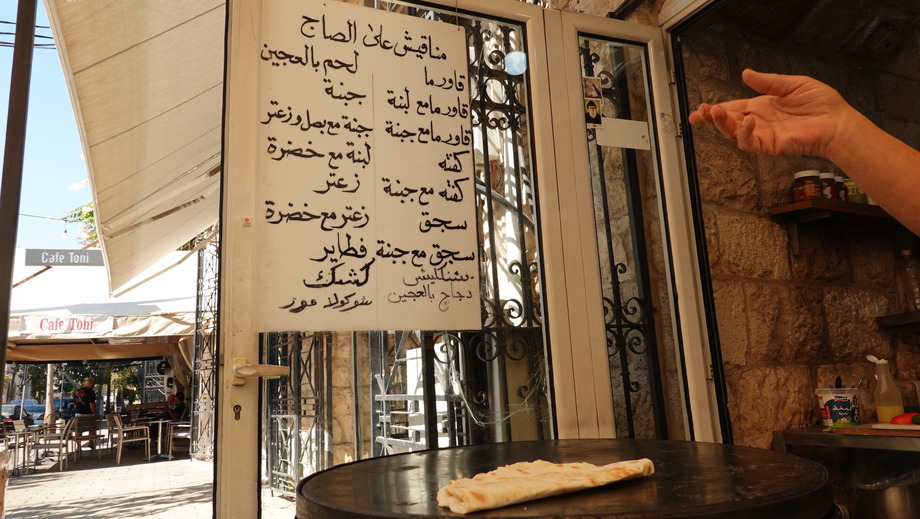 مناقيش على الصاج
قاورما
قاورما مع لبنة
قاورما مع جبنة
كفته
كفته مع جبنة
سجق
سجق مع جبنة
دجاج بالعجين
لحم بالعجين
جبنة
جبنة مع بصل وزعتر
لبنة مع خضرة
زعتر
زعتر مع خضرة
فطاير
كشك
شوكولا موز
Cafe Toni
Cafe Toni
لبنة